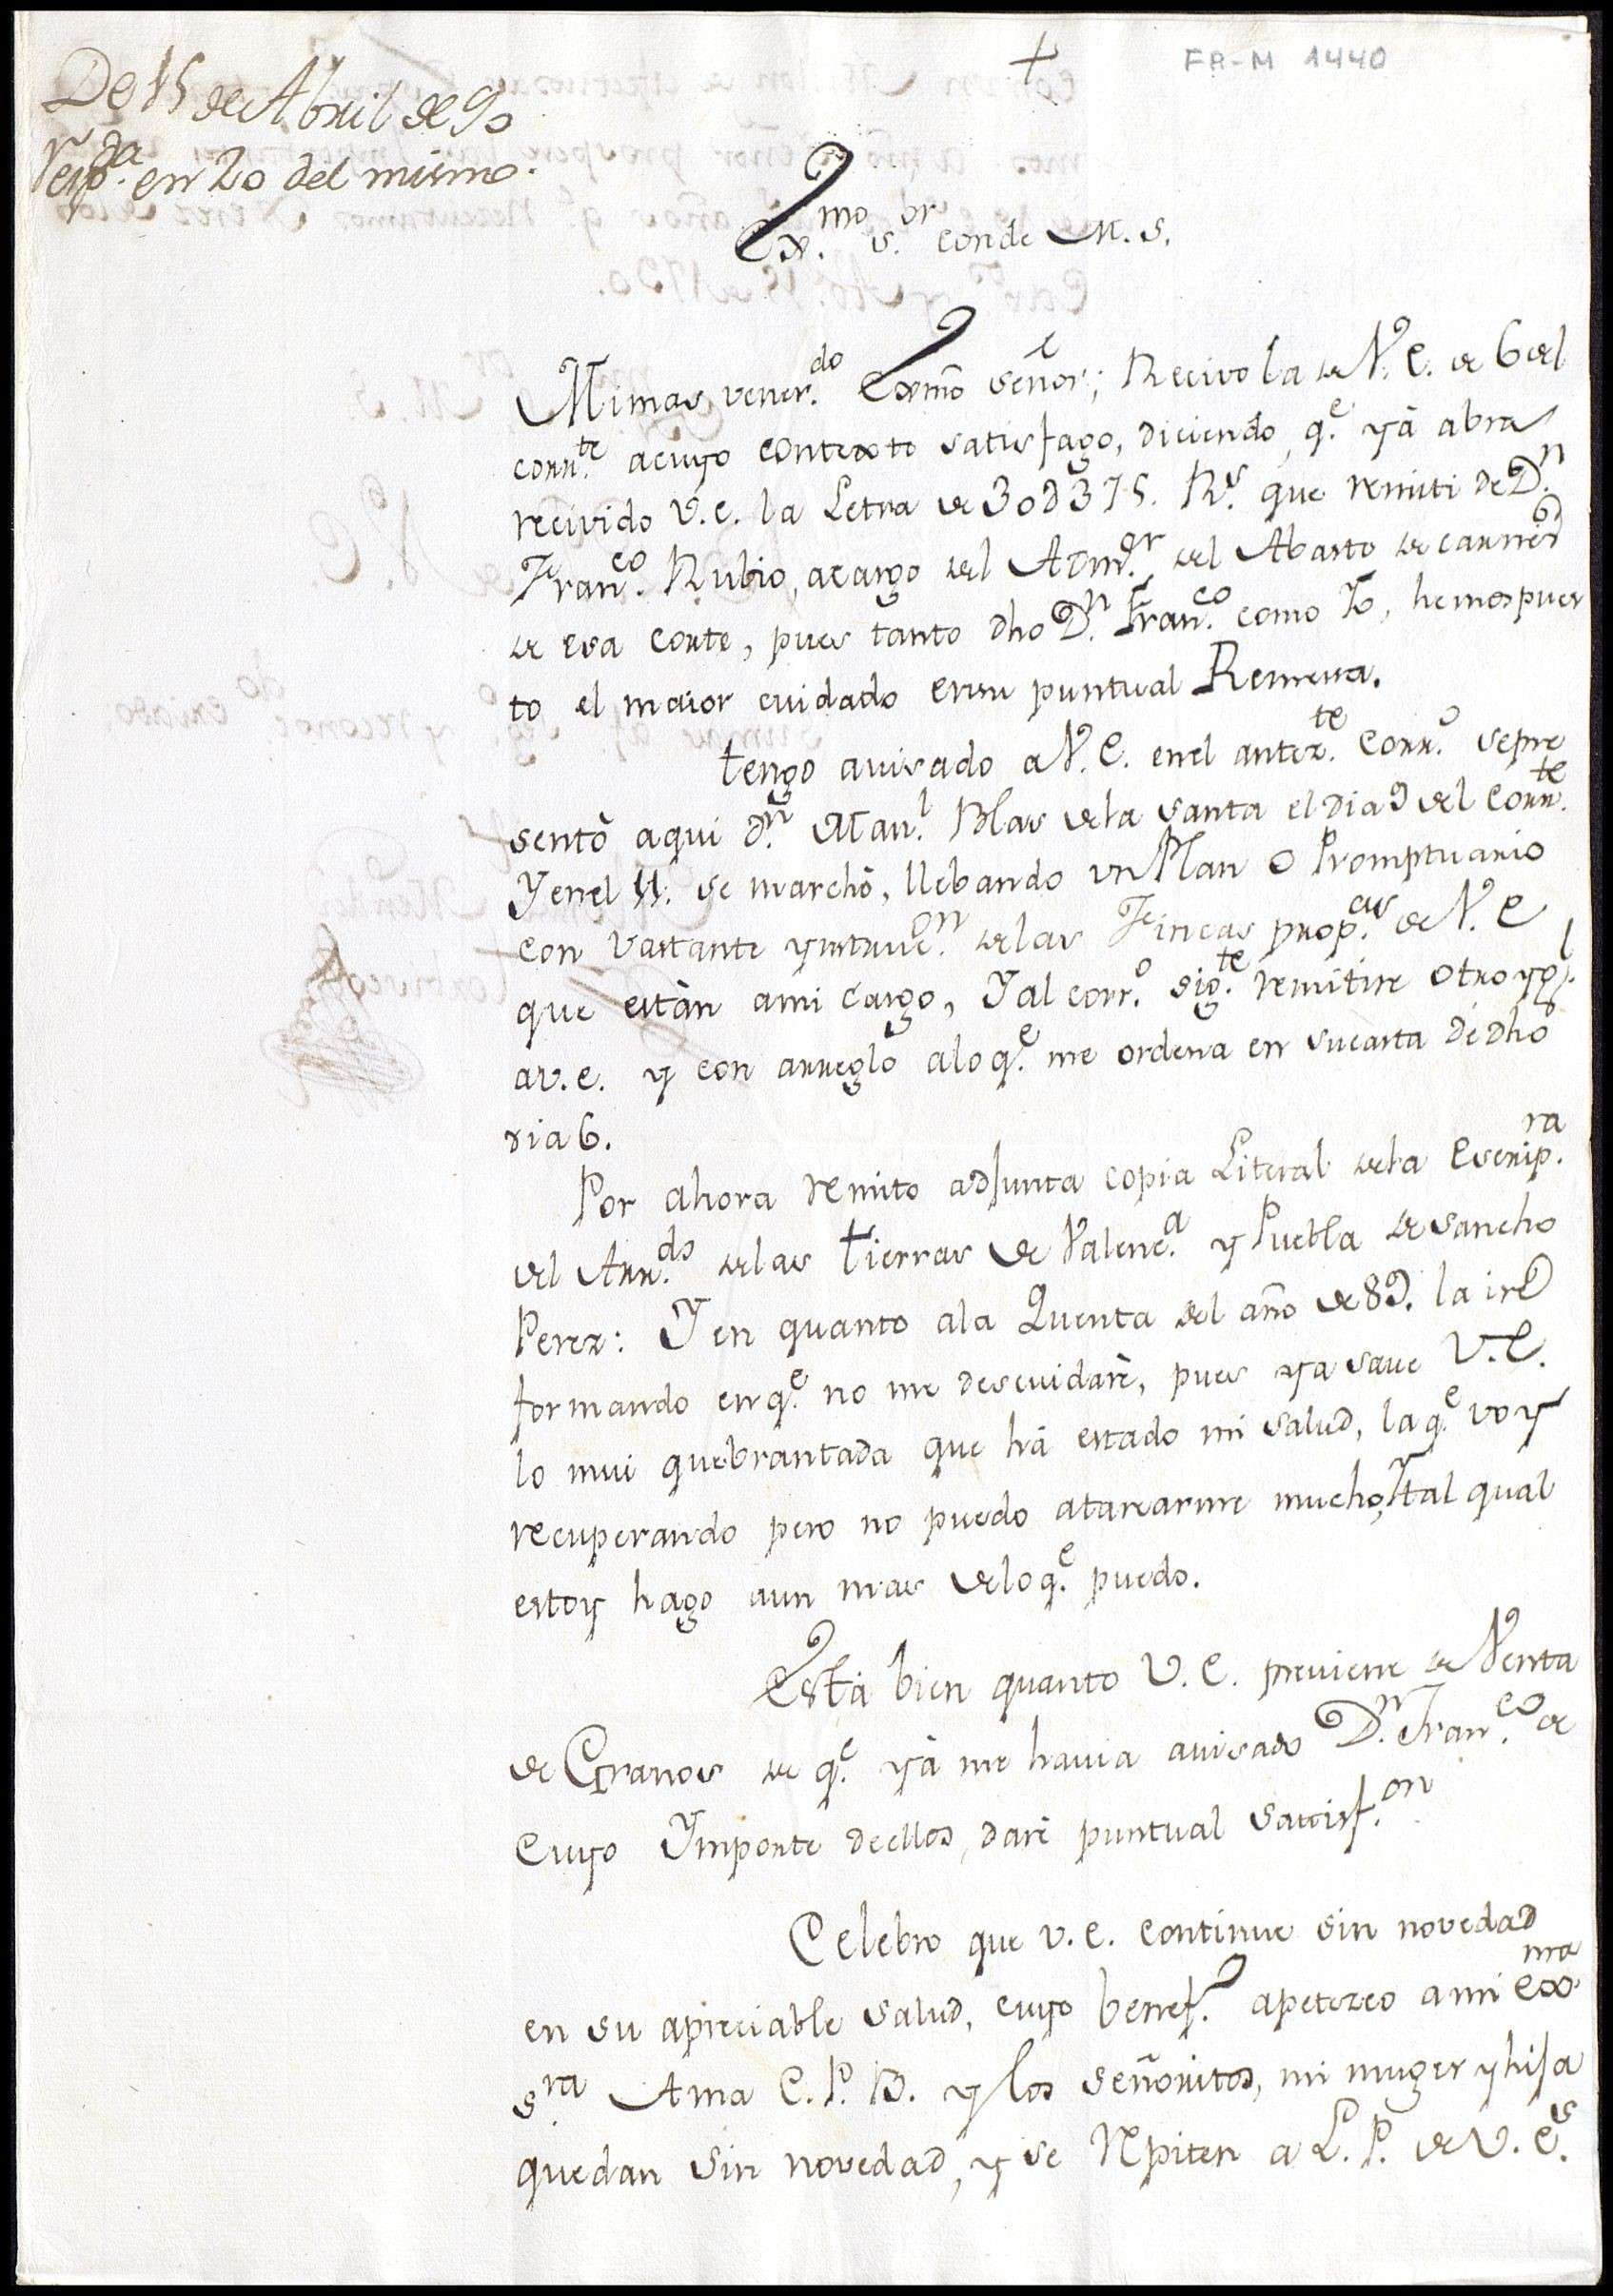 FA-M 1440
+
De 15 de Abril de 90
Resp.da en 20 del mismo.
Ex.mo s.or conde M. S.
Mi mas vener.do Exmo señor; Recivo la de V. E. de 6 del
corr.te a cuyo contexto satisfago, diciendo, q.e yà abra
recivido V. e. la Letra de 30 375. R.s que remiti de D.n
Fran.co Rubio, a cargo del Adm.or del Abasto de carnes
de esa corte, pues tanto dho D.n Fran.co como Yo, hemos pues
to el maior cuidado en su puntual Remesa.
tengo avisado a V. E. en el anter.te corr.o se pre
sentò aqui D.n Man.l Blas de la santa el dia 9 del corr.te
Y en el 11. se marchò, llebando un Plan o Promptuario
con vastante ynstruc.on de las Fincas prop.as de V. E
que estàn a mi cargo, Y al corr.o sig.te remitire otro yg.l
a v. e. y con arreglo a lo q.e me ordena en su carta de dho
dia 6.
Por ahora remito adjunta copia Literal de la Escrip.ra
del Arr.do de las tierras de Valenc.a y Puebla de sancho
Perez: Y en quanto a la Quenta del año de 89. la irè
formando en q.e no me descuidarè, pues ya save V. E.
lo mui quebrantada que hà estado mi salud, la q.e voy
recuperando pero no puedo atarearme mucho, Y tal qual
estoy hago aun mas de lo q.e puedo.
Està bien quanto V. E. previene de Venta
de Granos de q.e yà me havia avisado D.n Fran.co de
cuyo Ymporte de ellos, darè puntual satisf.on
Celebro que v. e. continue sin novedad
en su apreciable salud, cuyo benef.o apetezco a mi ex.ma
s.ra Ama C. P. B. y los señoritos, mi muger y hija
quedan sin novedad, y se repiten a L. P. de V. E.s